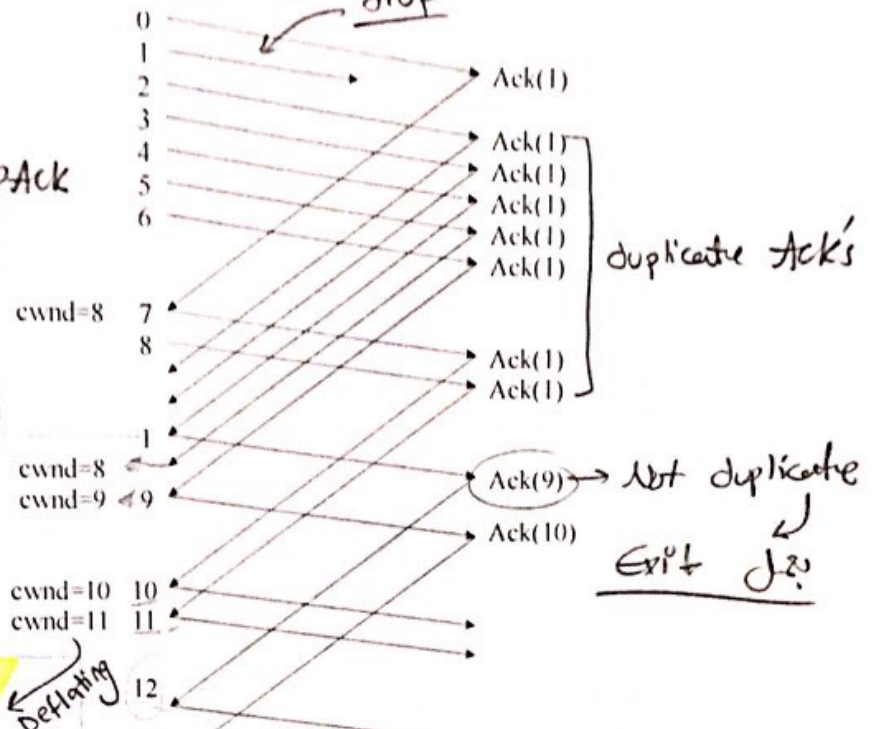 drop
0
1
2
3
4
5
6
Ack(1)
Ack(1)
Ack(1)
Ack(1)
Ack(1)
Ack(1)
duplicate Ack's
cwnd=8 7
8
Ack(1)
Ack(1)
1
cwnd=8
cwnd=9 9
Ack(9) → Not duplicate
Ack(10)
Exit
cwnd=10 10
cwnd=11 11
Deflating
12